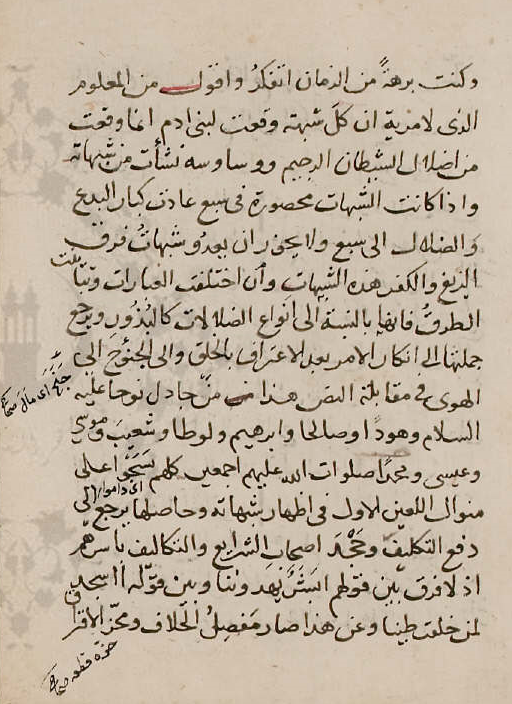 وكنت برهةً من الزمان اتفكر واقول من المعلوم
الذى لامرية ان كل شبهة وقعت لبنى ادم انما وقعت
من اضلال الشيطان الرجيم ووساوسه نشأت من شبهاته
واذا كانت الشبهات محصورة فى سبع عادت كبار البدع
والضلال الى سبع ولا يجوز ان يعدو شبهات فرق
الزيغ والكفر هذه الشبهات وان اختلفت العبارات وتباينت
الطرق فانها بالنسبة الى انواع الضلالات كالبذور ويرجع
جملتها الى انكار الامر بعد الاعتراف بالحق والى الجنوح الى
الهوى فى مقابلة النص هذا من جادل نوحا عليه
السلام وهودًا وصالحا وابرهيم ولوطا وشعيب وموسى
وعيسى ومحمدًا صلوات الله عليهم اجمعين كلهم نسجوا على
منوال اللعين الاول فى اظهار شبهاته وحاصلها يرجع الى
دفع التكليف وجحد اصحاب الشرايع والتكاليف باسرهم
اذ لا فرق بين قولهم ابشر يهدوننا وبين قوله أاسجد
لمن خلقت طينا وعن هذا صار مفصل الخلاف ومحز الافترا
جنح اى مال صحاح
اى داموا
حزه قطعه صحاح